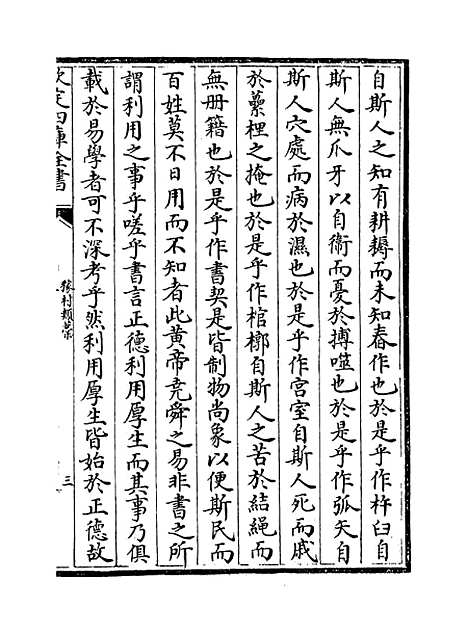 自斯人之知有耕耨而未知舂作也於是乎作杵臼自
斯人無爪牙以自衞而憂於搏噬也於是乎作弧矢自
斯人穴處而病於濕也於是乎作宫室自斯人死而戚
於虆梩之掩也於是乎作棺槨自斯人之苦於結繩而
無册籍也於是乎作書契是皆制物尚象以便斯民而
百姓莫不日用而不知者此黄帝堯舜之易非書之所
謂利用之事乎嗟乎書言正德利用厚生而其事乃俱
載於易學者可不深考乎然利用厚生皆始於正德故
欽定四庫全書
豫村類藁
三